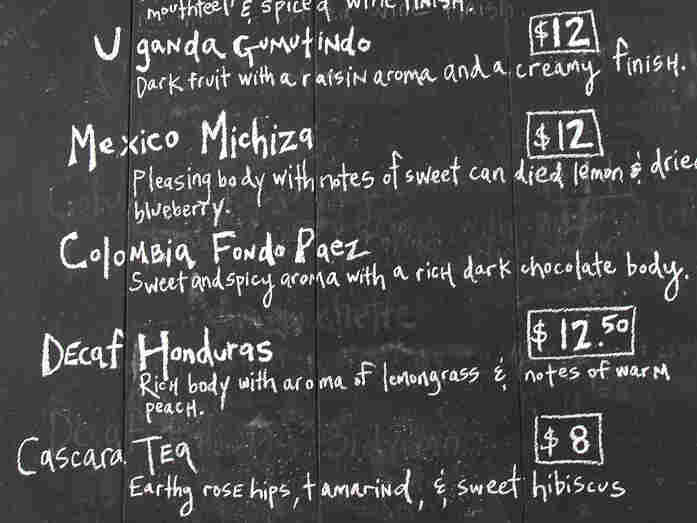 mouthfeel & spiced wine finish.
Uganda Gumutindo $12
Dark fruit with a raisin aroma and a creamy finish.
Mexico Michiza $12
Pleasing body with notes of sweet candied lemon & dried
blueberry.
Colombia Fondo Paez
Sweet and spicy aroma with a rich dark chocolate body.
Decaf Honduras $12.50
Rich body with aroma of lemongrass & notes of warm
peach.
Cascara Tea $8
Earthy rose hips, tamarind, & sweet hibiscus